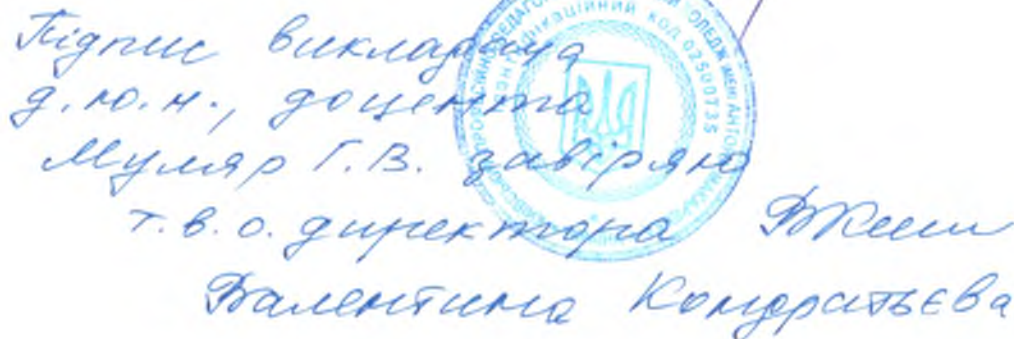 Підпис викладача
д.ю.н., доцента
Муляр Г.В. завіряю
т.в.о. директора
Валентина Кондратьєва
ідентифікаційний код 02500735